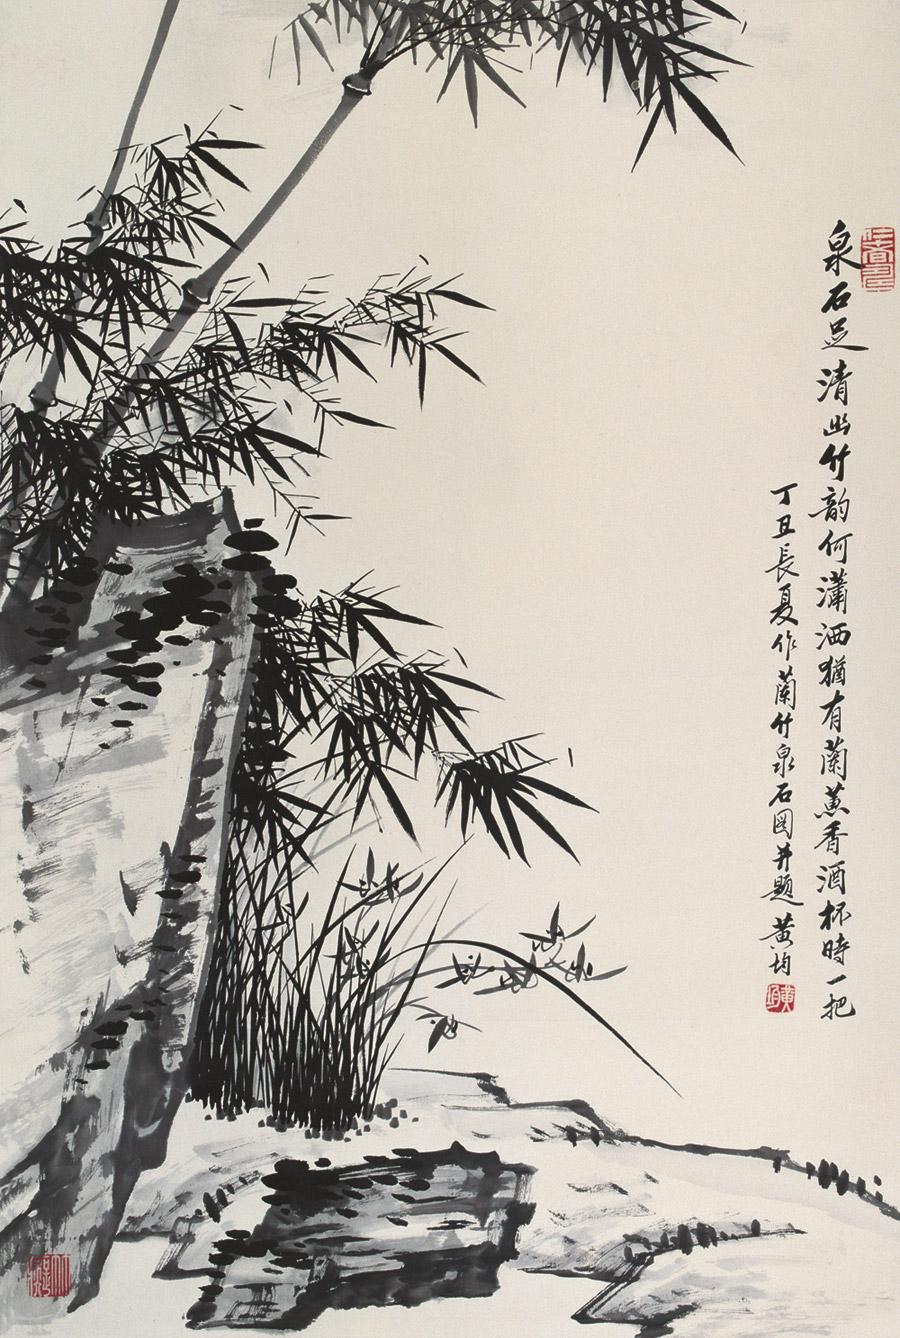 泉石足清幽竹韵何瀟洒猶有蘭蕙香酒杯時一把
丁丑長夏作蘭竹泉石图并题黄均
黄均